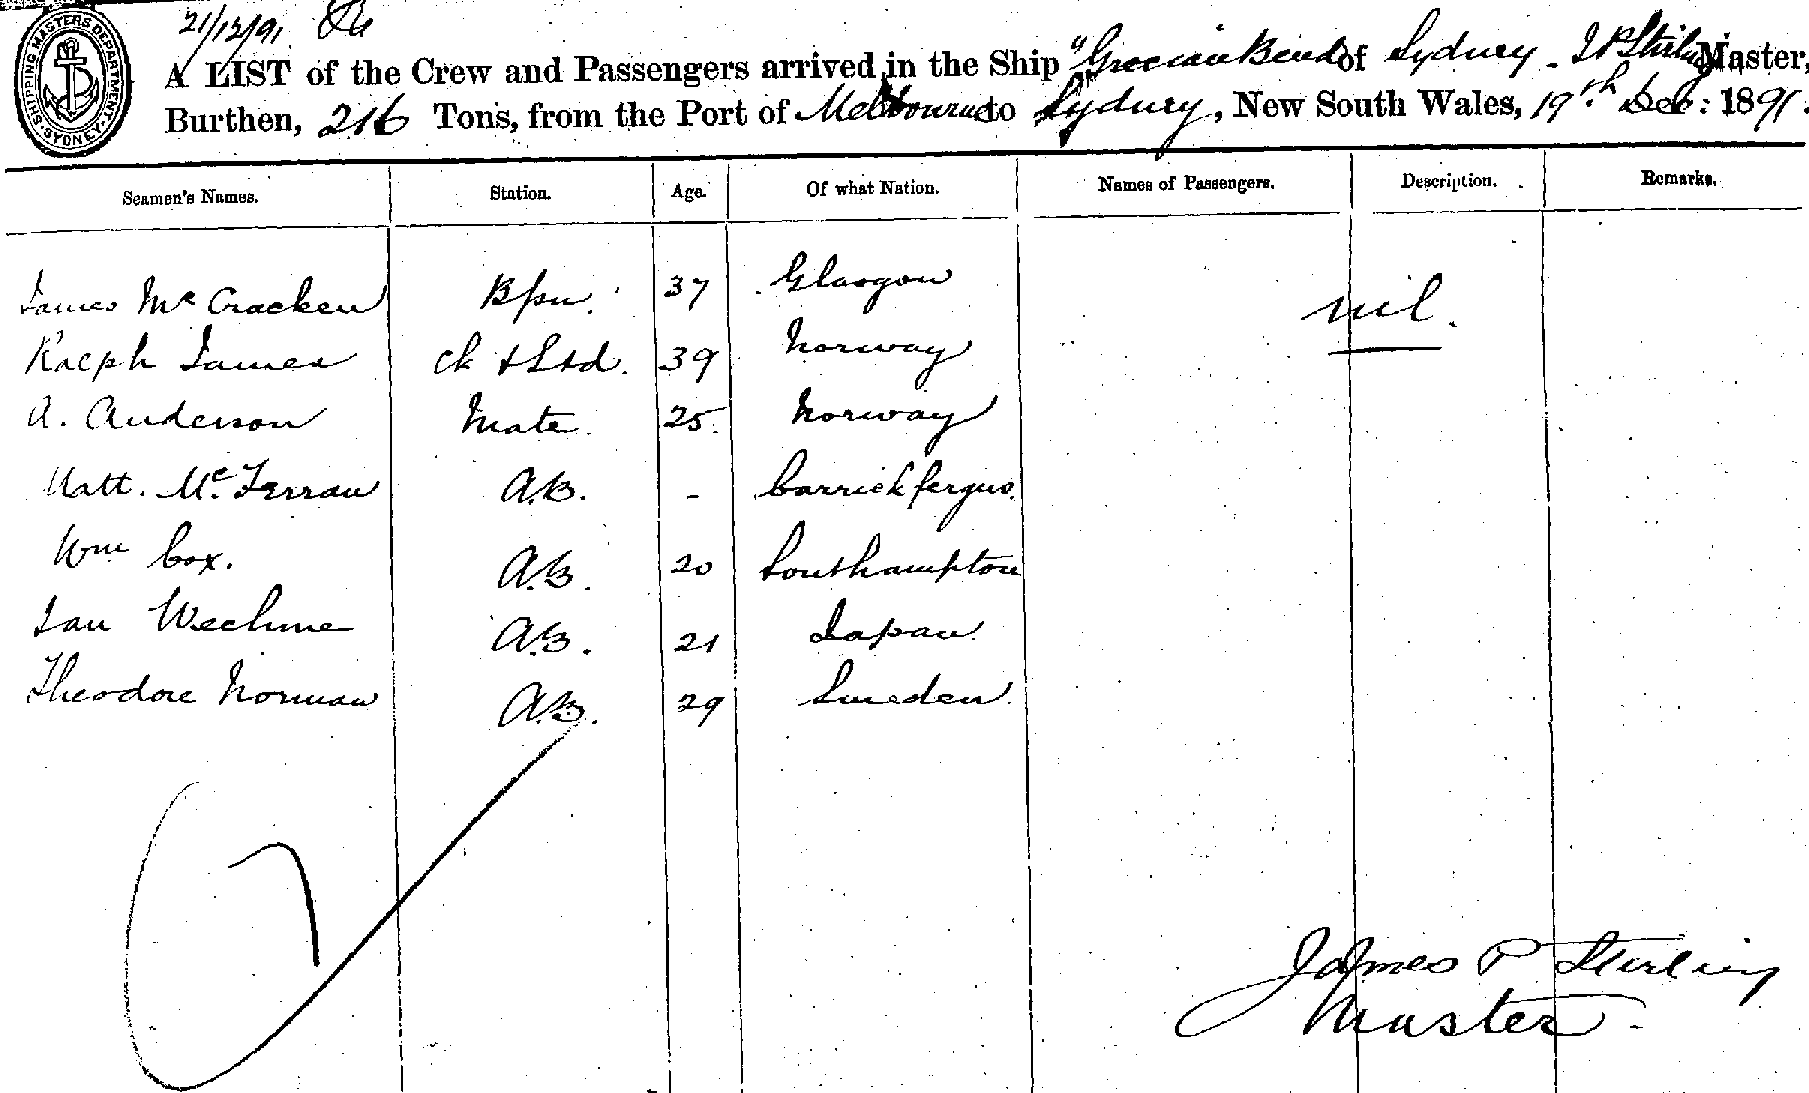 21/12/91
SHIPPING MASTERS DEPARTMENT SYDNEY
A LIST of the Crew and Passengers arrived in the Ship "Grecian Bend of Sydney - J P Stirling Master,
Burthen, 216 Tons, from the Port of Melbourne to Sydney, New South Wales, 19th Dec: 1891.
Seamen's Names. Station. Age. Of what Nation. Names of Passengers. Description. Remarks.
James McCracken 37 Glasgow nil.
Ralph James Ck & Std. 39 Norway
A. Anderson Mate 25 Norway
Matt. McFerran A.B. - Carrickfergus.
Wm Cox. A.B. 20 Southampton
Jan A.B. 21 Japan.
Theodore Norman A.B. 29 Sweden.
7
James P Stirling
Master